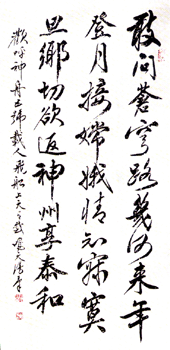 敢问苍穹路几何来年
登月接嫦娥情知寂寞
思乡切欲返神州享泰和
欢呼神舟五号载人飞船上天之